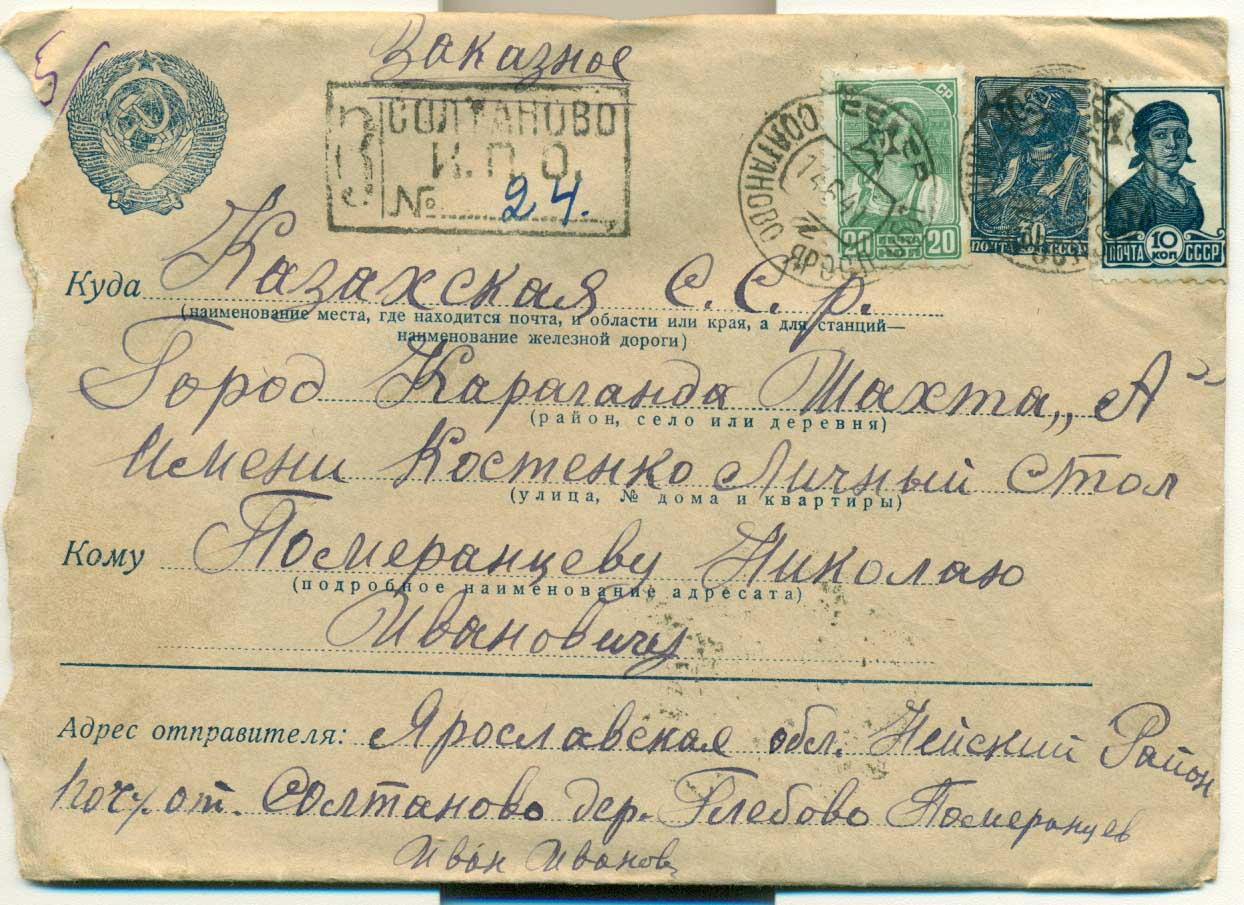 Заказное
З СОЛТАНОВО
И.П.О.
№ 24.
СОЛТАНОВО
20 ПОЧТА 20
30
ПОЧТА СССР
ПОЧТА 10 КОП СССР
Куда Казахская С.С.р.
(наименование места, где находится почта, и области или края, а для станций—
наименование железной дороги)
Город Караганда Шахта „А"
(район, село или деревня)
Имени Костенко Личный Стол
(улица, № дома и квартиры)
Кому Померанцеву Николаю
(подробное наименование адресата)
Ивановичу
Адрес отправителя: Ярославская обл. Нейский Район
от. Солтаново дер. Глебово Померанцев
Иван Иванов